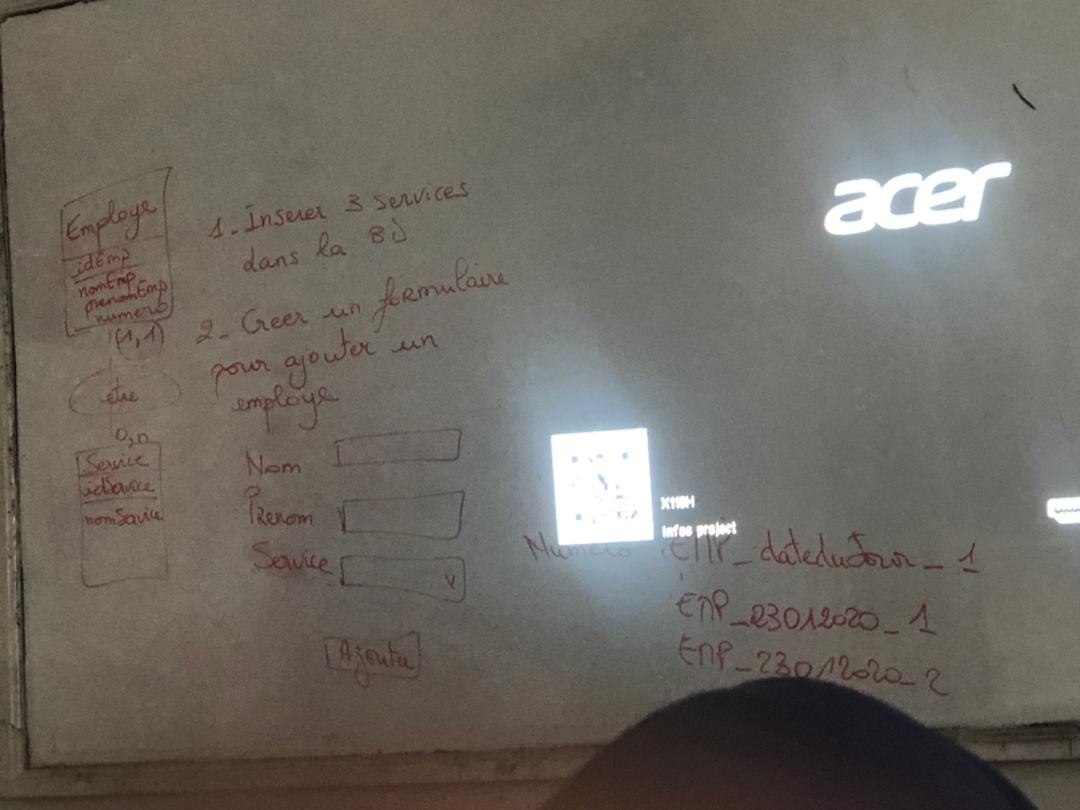 Employe
idEmp
nomEmp
prenomEmp
numero
(1,1)
etre
0,n
Service
idService
nomService
1- Inserer 3 services
dans la BD
2- Creer un formulaire
pour ajouter un
employe
Nom
Prenom
Service
Ajouter
acer
X118H
Infos project
Numero : EMP_dateduJour_1
EMP_23012020_1
EMP_23012020_2